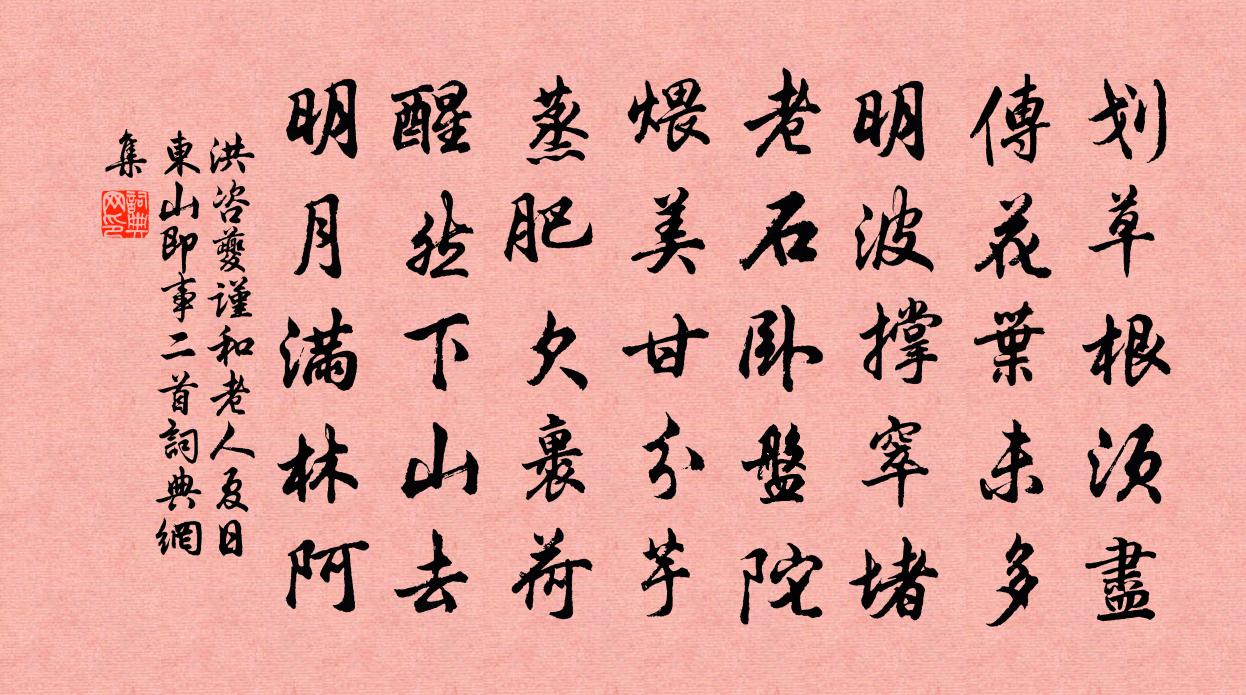 划草根須盡
傳花葉未多
明波撐窣堵
老石卧盤陀
煨美甘分芋
蒸肥欠裹荷
醒然下山去
明月滿林阿
洪咨夔謹和老人夏日
東山即事二首詞典網
集
詞典網印